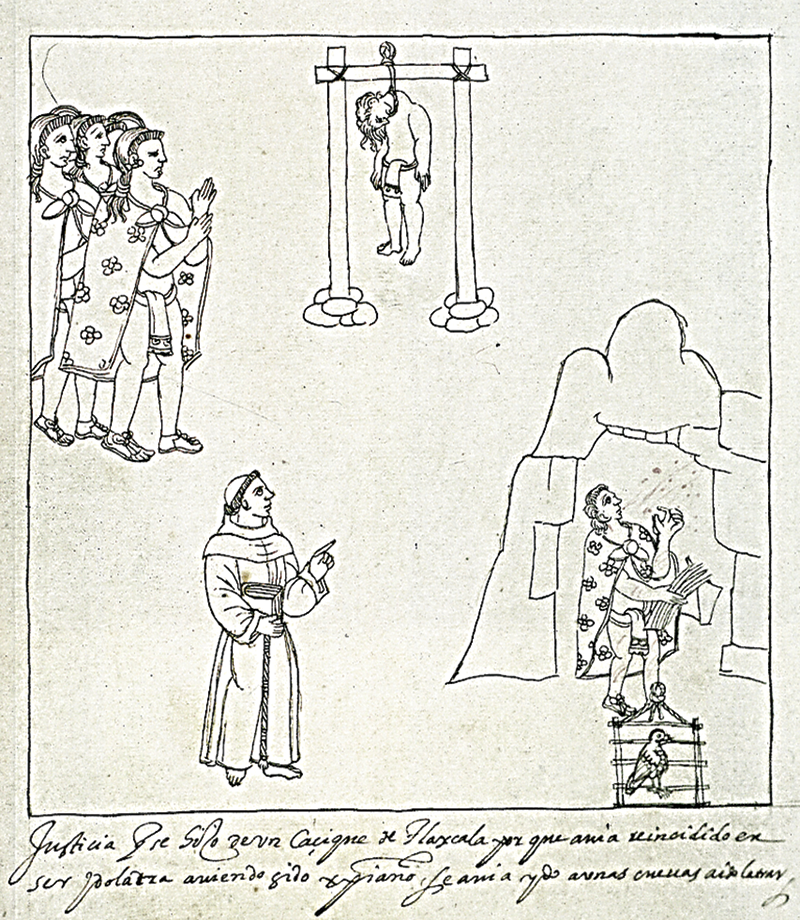 Justicia q̃ se hizo de un Caçique de Tlaxcala por que auia reincidido en
ser ydolatra auiendo sido xp̃iano, se auia ydo a unas cueuas a idolatrar